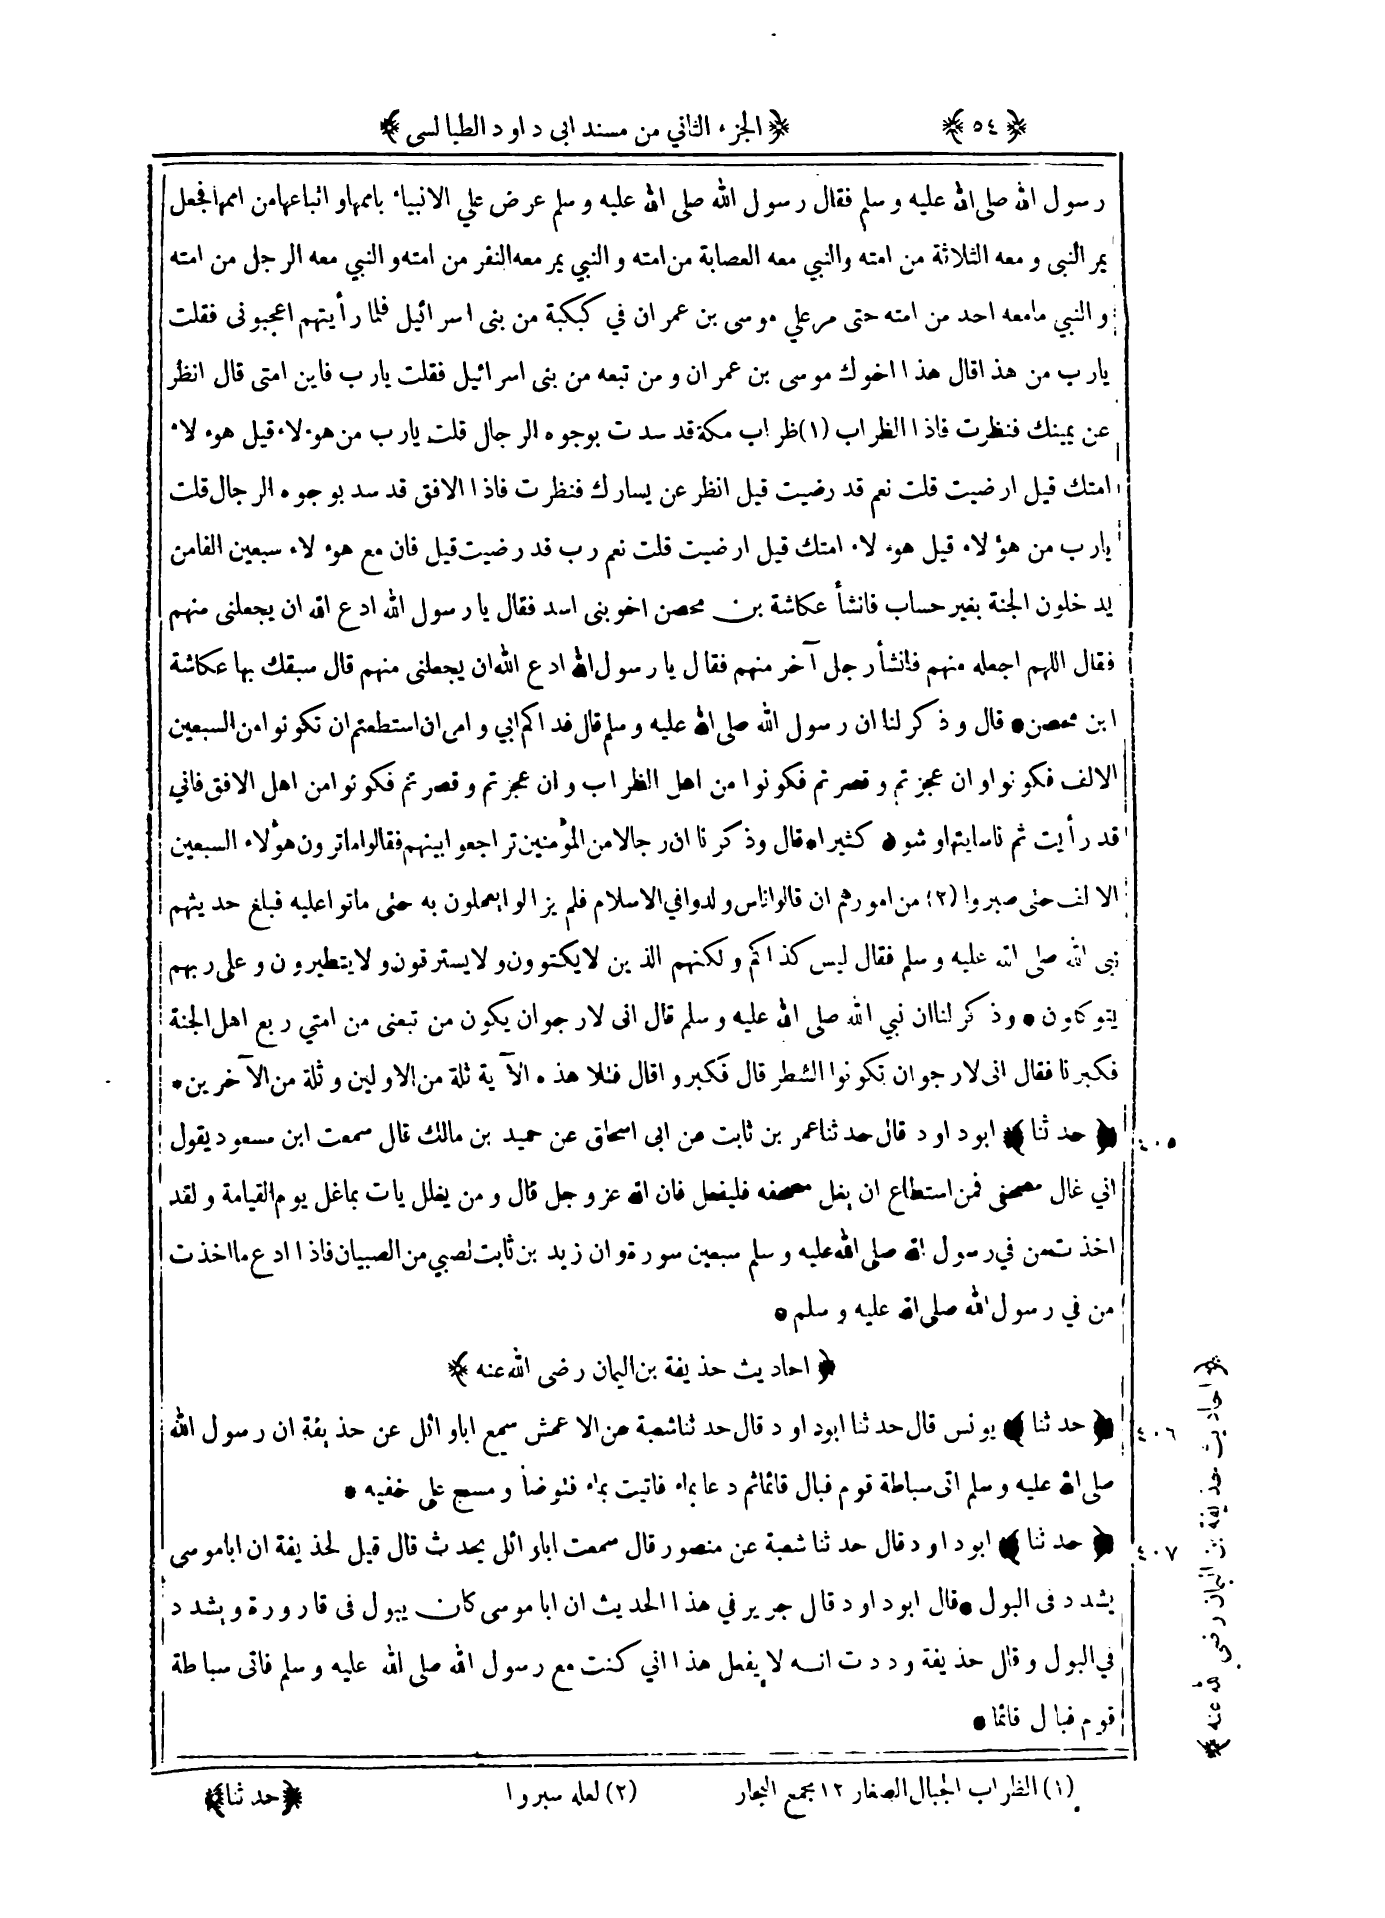 ﴿ ٥٤ ﴾ ﴿ الجزء الثاني من مسند ابى داود الطيالسى ﴾
رسول الله صلى الله عليه وسلم فقال رسول الله صلى الله عليه وسلم عرض علي الانبياء باممها واتباعها من اممها فجعل
يمر النبى ومعه الثلاثة من امته والنبي معه العصابة من امته والنبي يمر معه النفر من امته والنبي معه الرجل من امته
والنبي مامعه احد من امته حتى مر علي موسى بن عمران في كبكبة من بنى اسرائيل فلما رأيتهم اعجبونى فقلت
يارب من هذا قال هذا اخوك موسى بن عمران ومن تبعه من بنى اسرائيل فقلت يارب فاين امتى قال انظر
عن يمينك فنظرت فاذا الظراب (١) ظراب مكة قد سدت بوجوه الرجال قلت يارب من هؤلاء قيل هؤلاء
امتك قيل ارضيت قلت نعم قد رضيت قيل انظر عن يسارك فنظرت فاذا الافق قد سد بوجوه الرجال قلت
يارب من هؤلاء قيل هؤلاء امتك قيل ارضيت قلت نعم رب قد رضيت قيل فان مع هؤلاء سبعين الفا من
يدخلون الجنة بغير حساب فانشأ عكاشة بن محصن اخو بنى اسد فقال يا رسول الله ادع الله ان يجعلنى منهم
فقال اللهم اجعله منهم فانشأ رجل آخر منهم فقال يا رسول الله ادع الله ان يجعلنى منهم قال سبقك بها عكاشة
ابن محصن • قال وذكر لنا ان رسول الله صلى الله عليه وسلم قال فداكم ابي وامى ان استطعتم ان تكونوا من السبعين
الالف فكونوا وان عجزتم وقصرتم فكونوا من اهل الظراب وان عجزتم وقصرتم فكونوا من اهل الافق فاني
قد رأيت ثم ناسا يتهاوشون كثيرا • قال وذكر نا ان رجالا من المؤمنين تراجعوا بينهم فقالوا ماترون هؤلاء السبعين
الالف حتى صبروا (٢) من امورهم ان قالوا ناس ولدوا في الاسلام فلم يزالوا يعملون به حتى ماتوا عليه فبلغ حديثهم
نبى الله صلى الله عليه وسلم فقال ليس كذاكم ولكنهم الذين لا يكتوون ولا يسترقون ولا يتطيرون وعلى ربهم
يتوكلون • وذكر لنا ان نبي الله صلى الله عليه وسلم قال انى لارجو ان يكون من تبعنى من امتي ربع اهل الجنة
فكبرنا فقال انى لارجو ان تكونوا الشطر قال فكبروا قال فتلا هذه الآية ثلة من الاولين وثلة من الآخرين •
٤٠٥ ﴿ حدثنا ﴾ ابوداود قال حدثنا عمر بن ثابت عن ابى اسحاق عن حميد بن مالك قال سمعت ابن مسعود يقول
اني غال مصحفى فمن استطاع ان يغل مصحفه فليفعل فان الله عزوجل قال ومن يغلل يات بماغل يوم القيامة ولقد
اخذت من في رسول الله صلى الله عليه وسلم سبعين سورة وان زيد بن ثابت لصبي من الصبيان فاذا ادع ما اخذت
من في رسول الله صلى الله عليه وسلم •
﴿ احاديث حذيفة بن اليمان رضى الله عنه ﴾
٤٠٦ ﴿ حدثنا ﴾ يونس قال حدثنا ابوداود قال حدثنا شعبة عن الاعمش سمع اباوائل عن حذيفة ان رسول الله
صلى الله عليه وسلم اتى سباطة قوم فبال قائما ثم دعا بماء فاتيت بماء فتوضأ ومسح على خفيه •
٤٠٧ ﴿ حدثنا ﴾ ابوداود قال حدثنا شعبة عن منصور قال سمعت اباوائل يحدث قال قيل لحذيفة ان اباموسى
يشدد فى البول • قال ابوداود قال جرير في هذا الحديث ان اباموسى كان يبول فى قارورة ويشدد
في البول وقال حذيفة وددت انه لا يفعل هذا اني كنت مع رسول الله صلى الله عليه وسلم فاتى سباطة
قوم فبال قائما •
﴿ احاديث حذيفة بن اليمان رضى الله عنه ﴾
(١) الظراب الجبال الصغار ١٢ مجمع البحار (٢) لعله سبروا ﴿حدثنا﴾